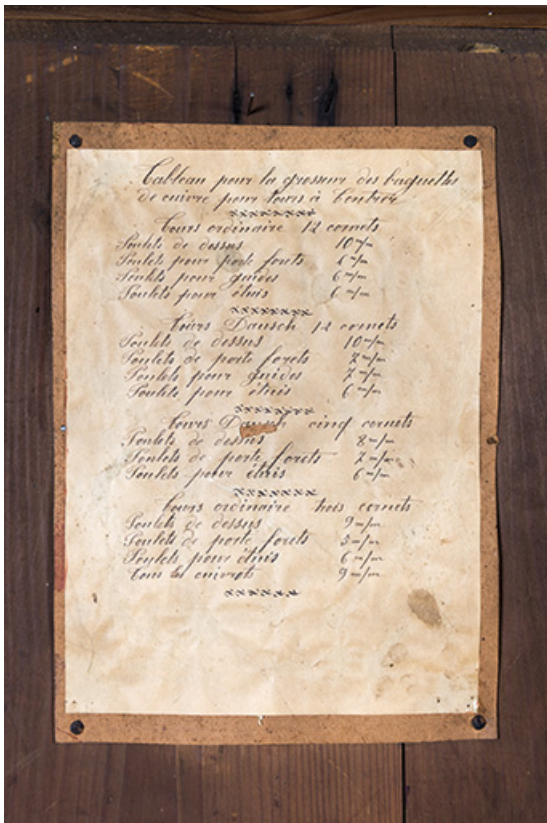 Tableau pour la grosseur des baguettes
de cuivre pour tours à
xxxxxxxx
Tours ordinaire 12 cornets
Poulets de dessus 10 m/m
Poulets pour porte forets 6 m/m
Poulets pour guides 6 m/m
Poulets pour étuis 6 m/m
xxxxxxxx
Tours Dausch 12 cornets
Poulets de dessus 10 m/m
Poulets de porte forets 7 m/m
Poulets pour guides 7 m/m
Poulets pour étuis 6 m/m
xxxxxxxx
Tours cinq cornets
Poulets de dessus 8 m/m
Poulets de porte forets 7 m/m
Poulets pour étuis 6 m/m
xxxxxxxx
Tours ordinaire trois cornets
Poulets de dessus 9 m/m
Poulets de porte forets 5 m/m
Poulets pour étuis 6 m/m
Tous les cuivrots 9 m/m
xxxxxxx